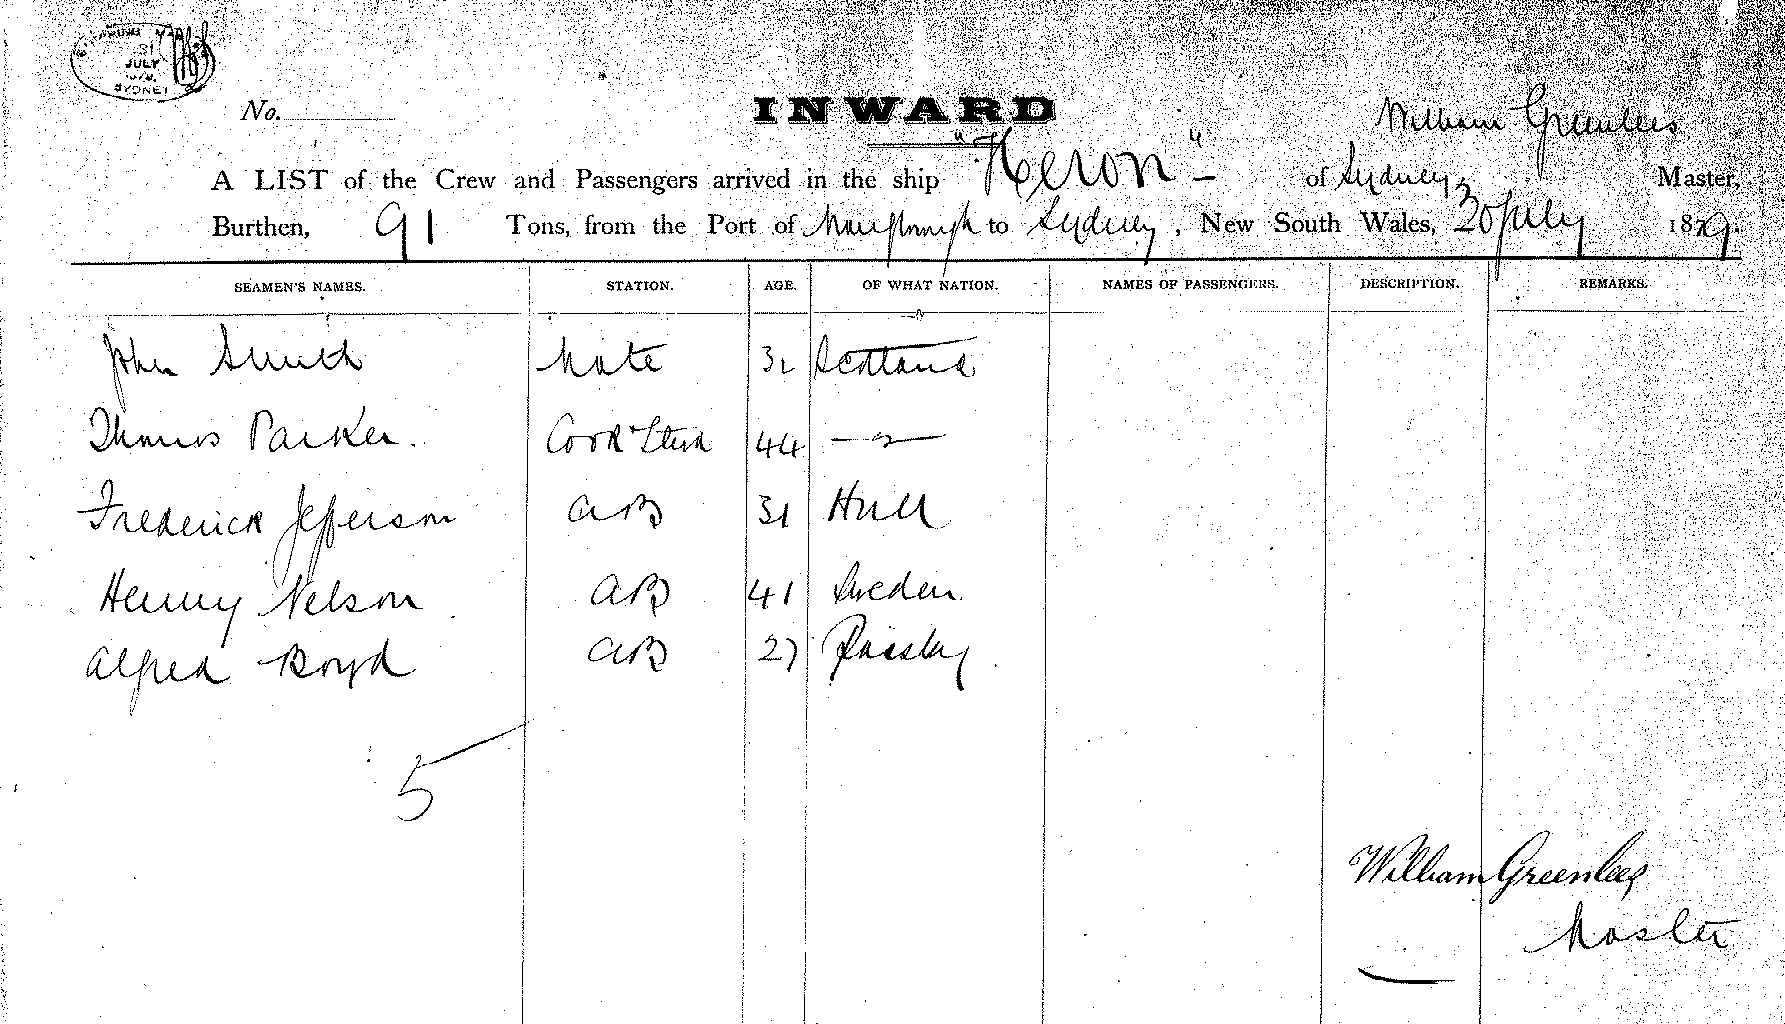 SHIPPING MAS
31
JULY
SYDNEY
No.
INWARD
William Greenlees
A LIST of the Crew and Passengers arrived in the ship "Heron" - of Sydney, Master,
Burthen, 91 Tons, from the Port of to Sydney, New South Wales, 30 July 1879.
SEAMEN'S NAMES. STATION. AGE. OF WHAT NATION. NAMES OF PASSENGERS. DESCRIPTION. REMARKS.
John Smith Mate 32 Scotland
Thomas Parker. Cook & Stwd 44 — " —
Frederick Jefferson AB 31 Hull
Henry Nelson AB 41 Sweden
Alfred Boyd AB 27 Paisley
5
William Greenlees
Master